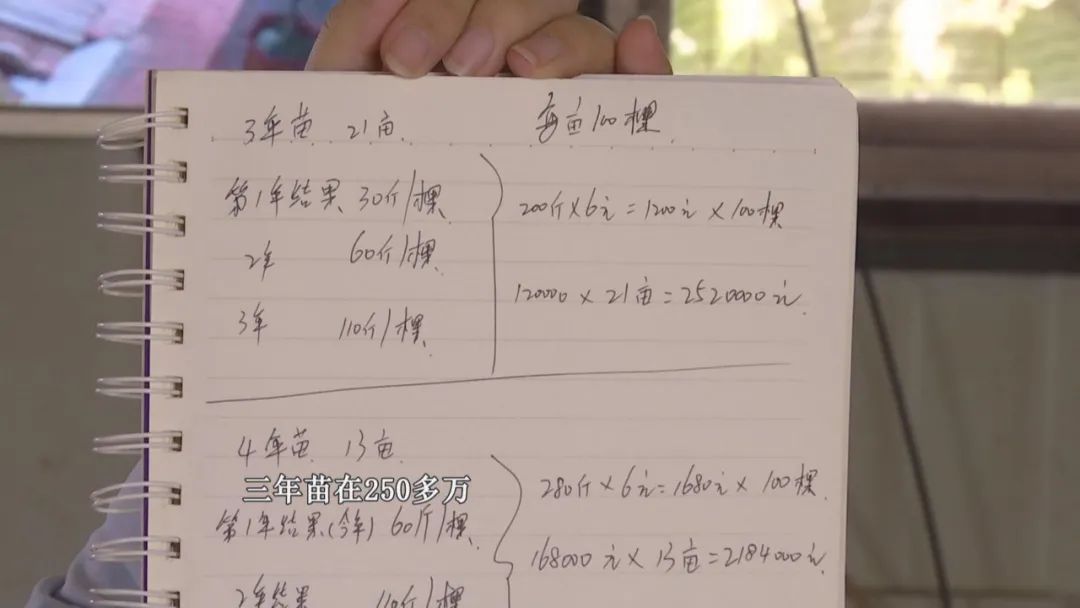 3年苗 21亩 每亩100棵
第1年结果 30斤/棵
2年 60斤/棵
3年 110斤/棵
200斤×6元=1200元×100棵
120000×21亩=2520000元
4年苗 13亩
三年苗在250多万
第1年结果(今年) 60斤/棵
2年结果 110斤/棵
280斤×6元=1680元×100棵
168000元×13亩=2184000元